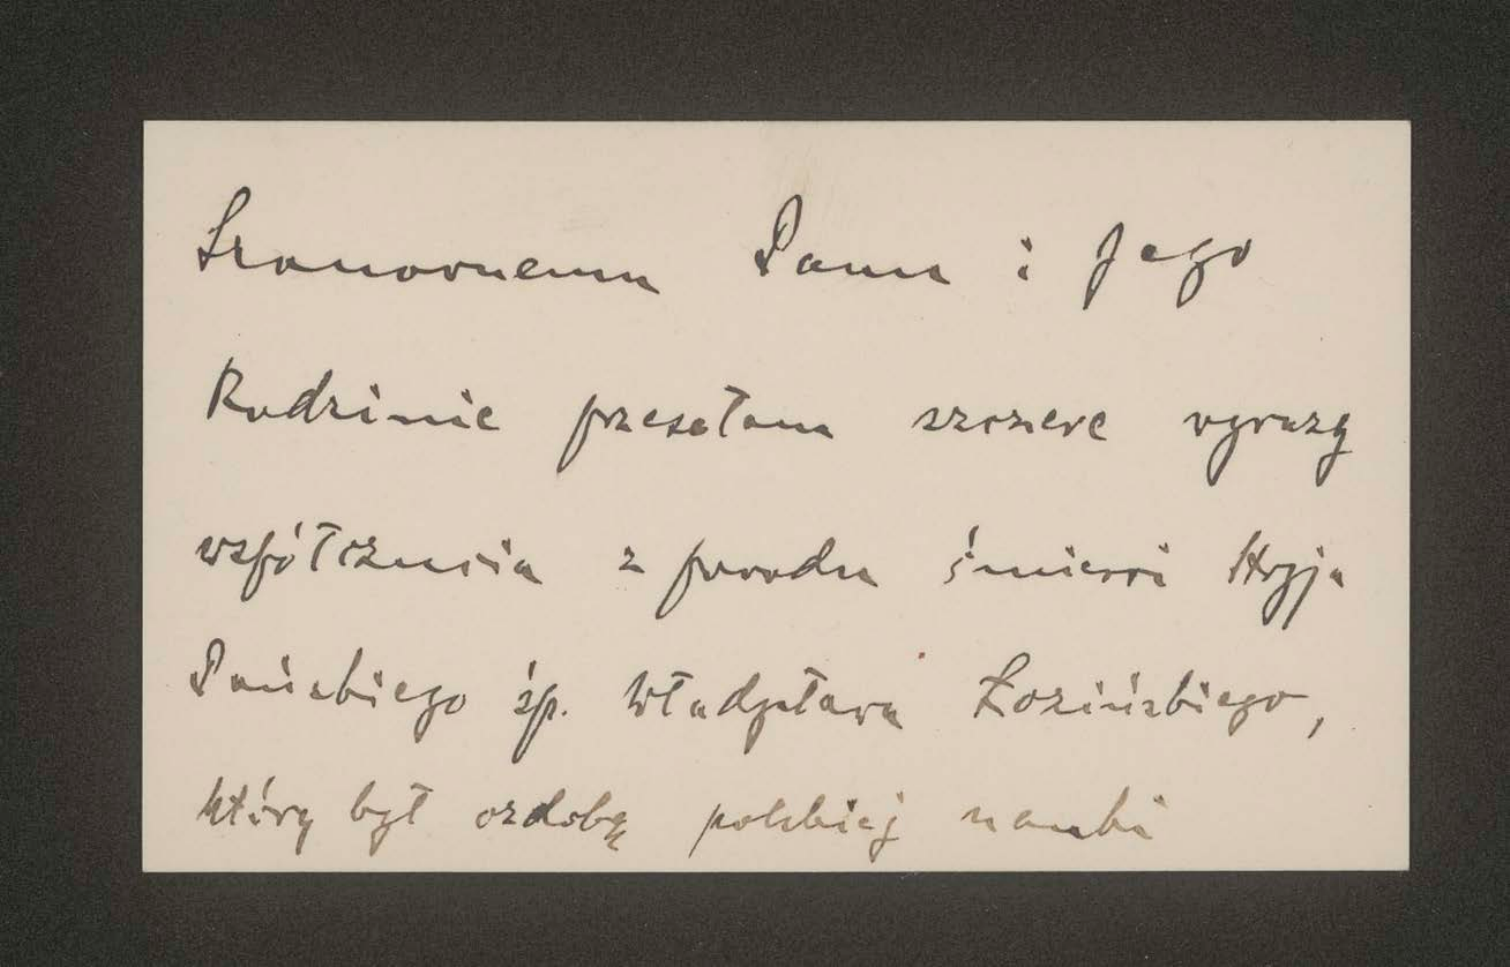 Szanownemu Panu i Jego
Rodzinie przesełam szczere wyrazy
współczucia z powodu śmierci Stryja
Pańskiego śp. Władysława Łozińskiego,
który był ozdobą polskiej nauki